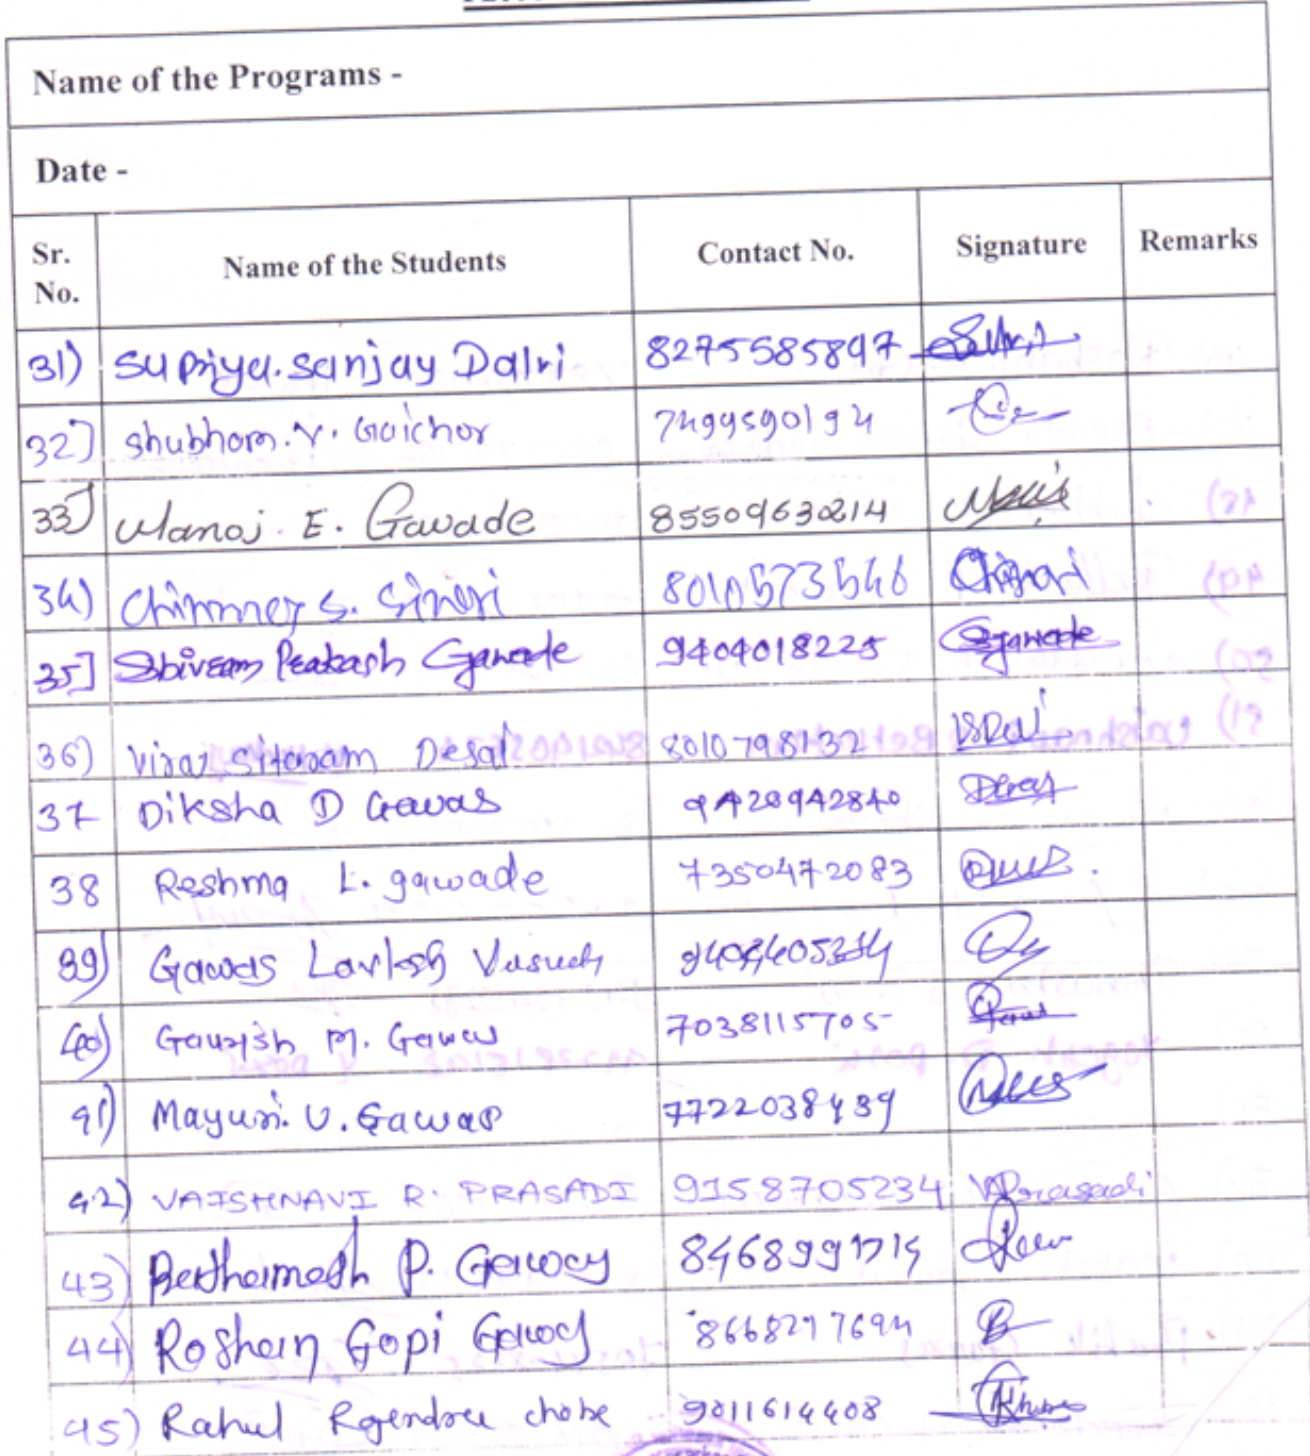 Name of the Programs -
Date -
Sr. No. Name of the Students Contact No. Signature Remarks
31) Supriya. Sanjay Dalvi 8275585897
32] Shubham. Y. Gaichor 7499590194
33] Manoj. E. Gawade 85509630214
34) Chinmey S. 8010573546
35] Shivram Prakash Gawade 9404018225
36) Viraj Sitaram Desai 8010798132
37 Diksha D Gawas 9420942840
38 Reshma L. gawade 7350472083
39) Gawas
40) Gaurish M. Gawas 7038115705
41) Mayuri. U. Gawas 7722038439
42) VAISHNAVI R. PRASADI 9158705234 VPrasadi
43) P. Gawas
44) Roshan Gopi Gawas 8668297694
45) Rahul Rajendra 9011614408